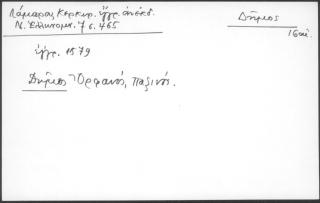 Λάμπρος Κερκυρ. ἔγγρ. ἀνέκδ.
Ν. Ἑλληνομν. 7 σ. 465
Δῆμος
16 αἰ.
ἔγγρ. 1579
Δῆμος Ὀρφανός, Παξινός.